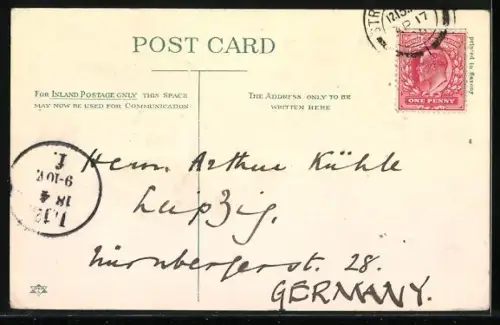 POST CARD
FOR INLAND POSTAGE ONLY THIS SPACE
MAY NOW BE USED FOR COMMUNICATION
THE ADDRESS ONLY TO BE
WRITTEN HERE
ONE PENNY
12.15
AP 17
18 4
9-10 V.
Herrn Arthur Kühle
Leipzig.
Nürnbergerst. 28.
GERMANY.